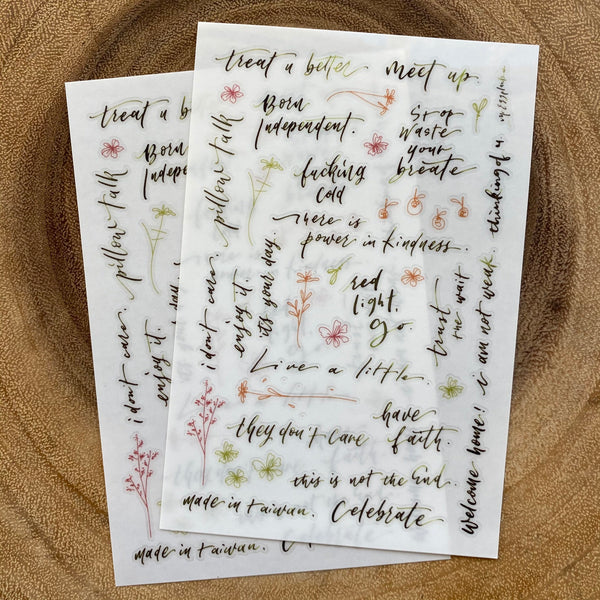 treat u better
meet up.
Born
Independent.
Stop
waste
your
breate
pillow talk
fucking
cold
thinking of u.
There is
power in kindness.
i dont care.
enjoy it.
it's your day.
red
light.
go.
trust
the wait
i am not weak.
Live a little.
they don't care
have
faith.
this is not the End.
welcome home!
made in taiwan.
Celebrate
treat u b
Born
Indepe
pillow talk
i dont care.
enjoy it.
made in taiwan.